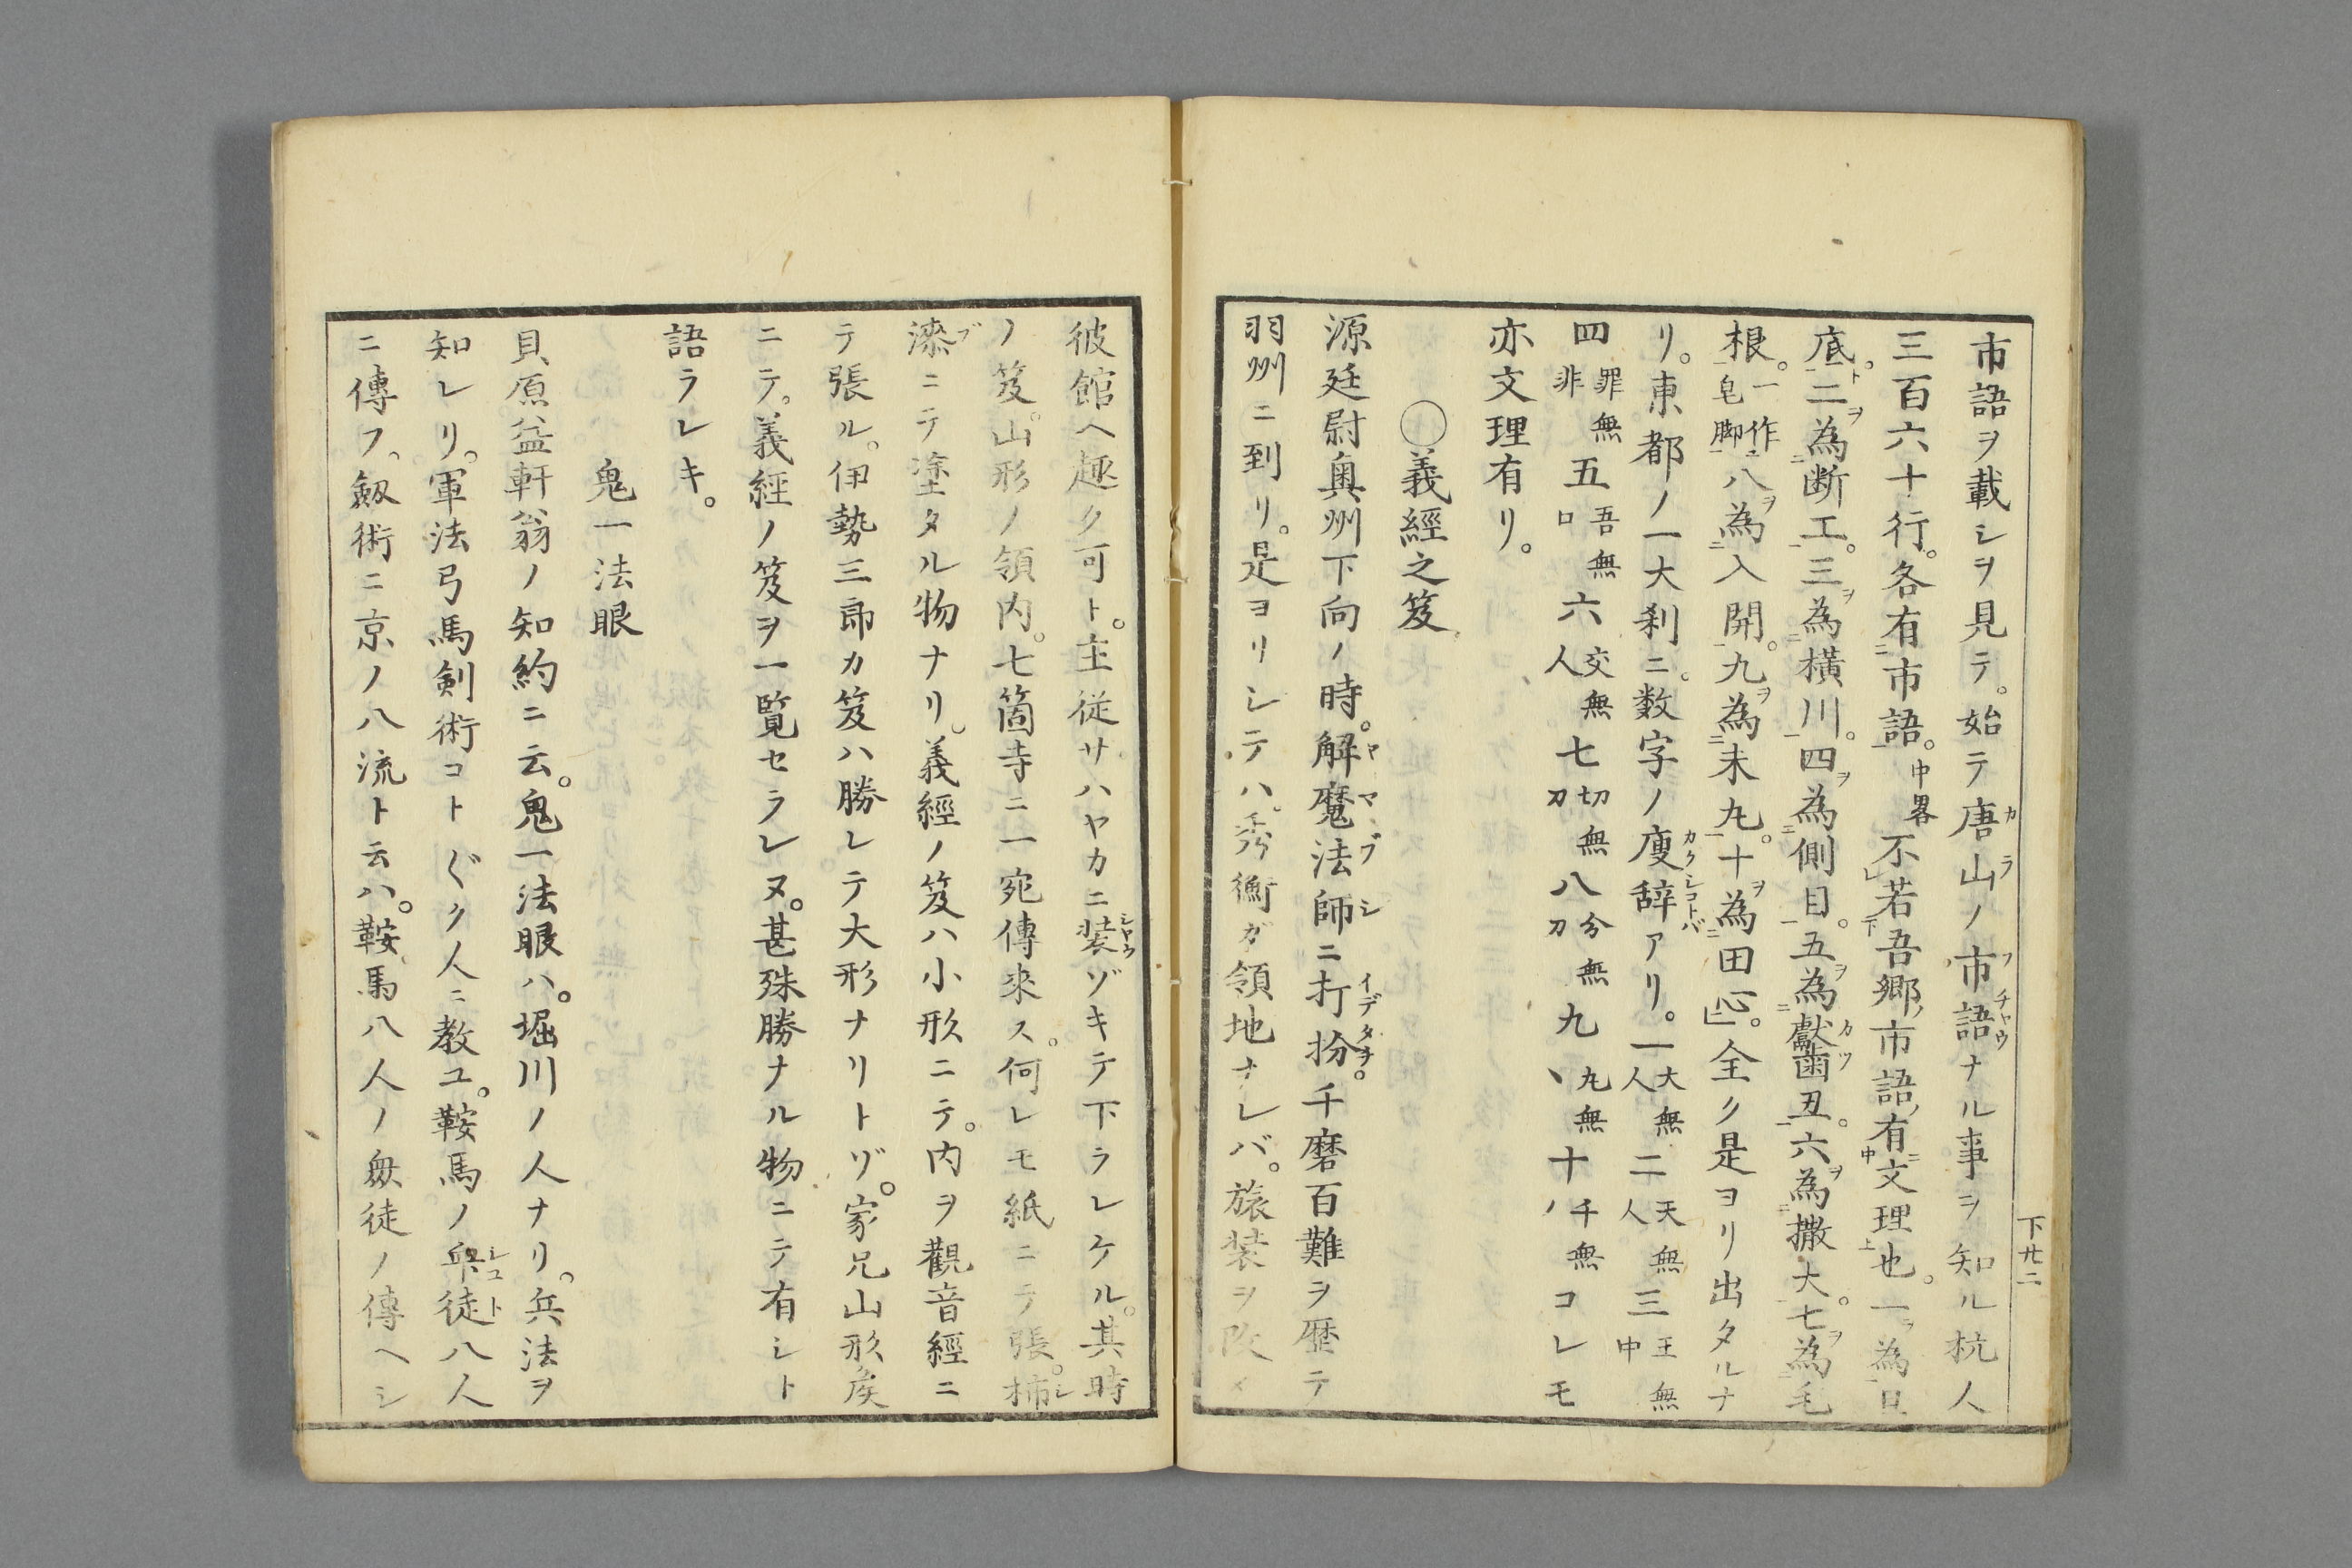 市語ヲ載シヲ見テ。始テ唐山ノ市語ナル事ヲ知ル杭人
三百六十行。各有市語。中畧不若吾郷市語有文理也。一為旦
底。二為断工。三為橫川。四為側目。五為𪘁丑。六為撒大。七為毛
根。一作皂脚八為入開。九為未丸。十為田心。全ク是ヨリ出タルナ
リ。東都ノ一大刹ニ。数字ノ廋辞アリ。一大無人二天無人三王無中
四罪無非五吾無口六交無人七切無刀八分無刀九丸無丶十千無ノコレモ
亦文理有リ。
○義經之笈
源廷尉奥州下向ノ時。解魔法師ニ打扮。千磨百難ヲ歴テ
羽州ニ到リ。是ヨリシテハ。秀衡ガ領地ナレバ。旅装ヲ改メ
下廿二
彼館ヘ趣ク可ト。主従サハヤカニ装ゾキテ下ラレケル。其時
ノ笈。山形ノ領内。七箇寺ニ一宛傳来ス。何レモ紙ニテ張。柿
漆ニテ塗タル物ナリ。義經ノ笈ハ小形ニテ。内ヲ觀音經ニ
テ張ル。伊勢三郎カ笈ハ勝レテ大形ナリトゾ。家兄山形矦
ニテ。義經ノ笈ヲ一覧セラレヌ。甚殊勝ナル物ニテ有シト
語ラレキ。
鬼一法眼
貝原益軒翁ノ知約ニ云。鬼一法眼ハ。堀川ノ人ナリ。兵法ヲ
知レリ。軍法弓馬剣術コト〴〵ク人ニ教ユ。鞍馬ノ衆徒八人
ニ傳フ。釼術ニ京ノ八流ト云ハ。鞍馬八人ノ衆徒ノ傳ヘシ